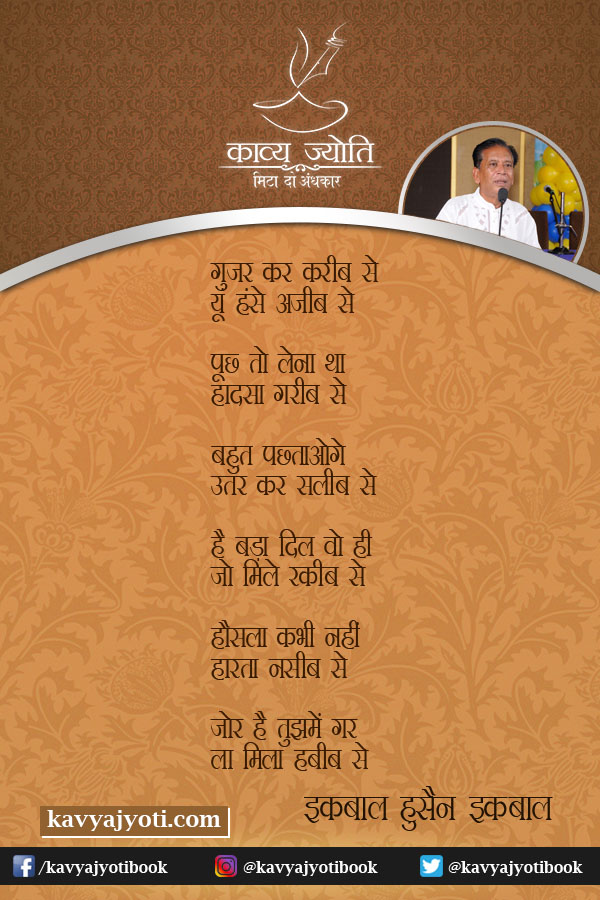 काव्य ज्योति
मिटा दो अंधकार
गुजर कर करीब से
यूं हंसे अजीब से
पूछ तो लेना था
हादसा गरीब से
बहुत पछताओगे
उतर कर सलीब से
है बड़ा दिल वो ही
जो मिले रकीब से
हौसला कभी नहीं
हारता नसीब से
जोर है तुझमें गर
ला मिला हबीब से
इकबाल हुसैन इकबाल
kavyajyoti.com
/kavyajyotibook @kavyajyotibook @kavyajyotibook